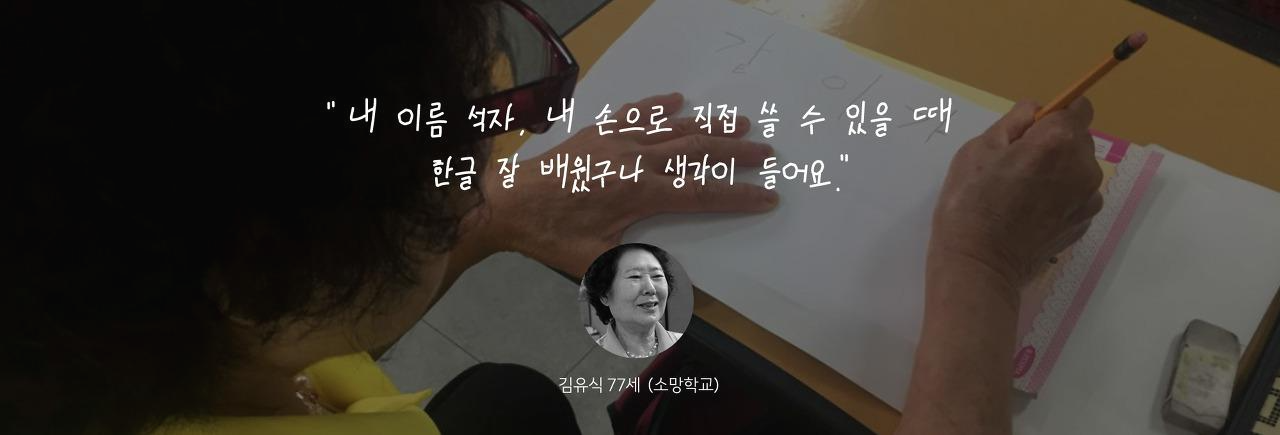 " 내 이름 석자, 내 손으로 직접 쓸 수 있을 때
한글 잘 배웠구나 생각이 들어요."
김유식 77세 (소망학교)